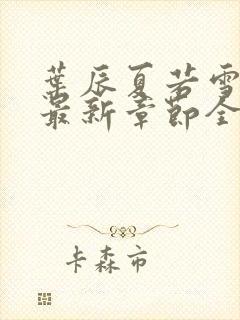 葉辰夏若雪
最新章節全
卡森市